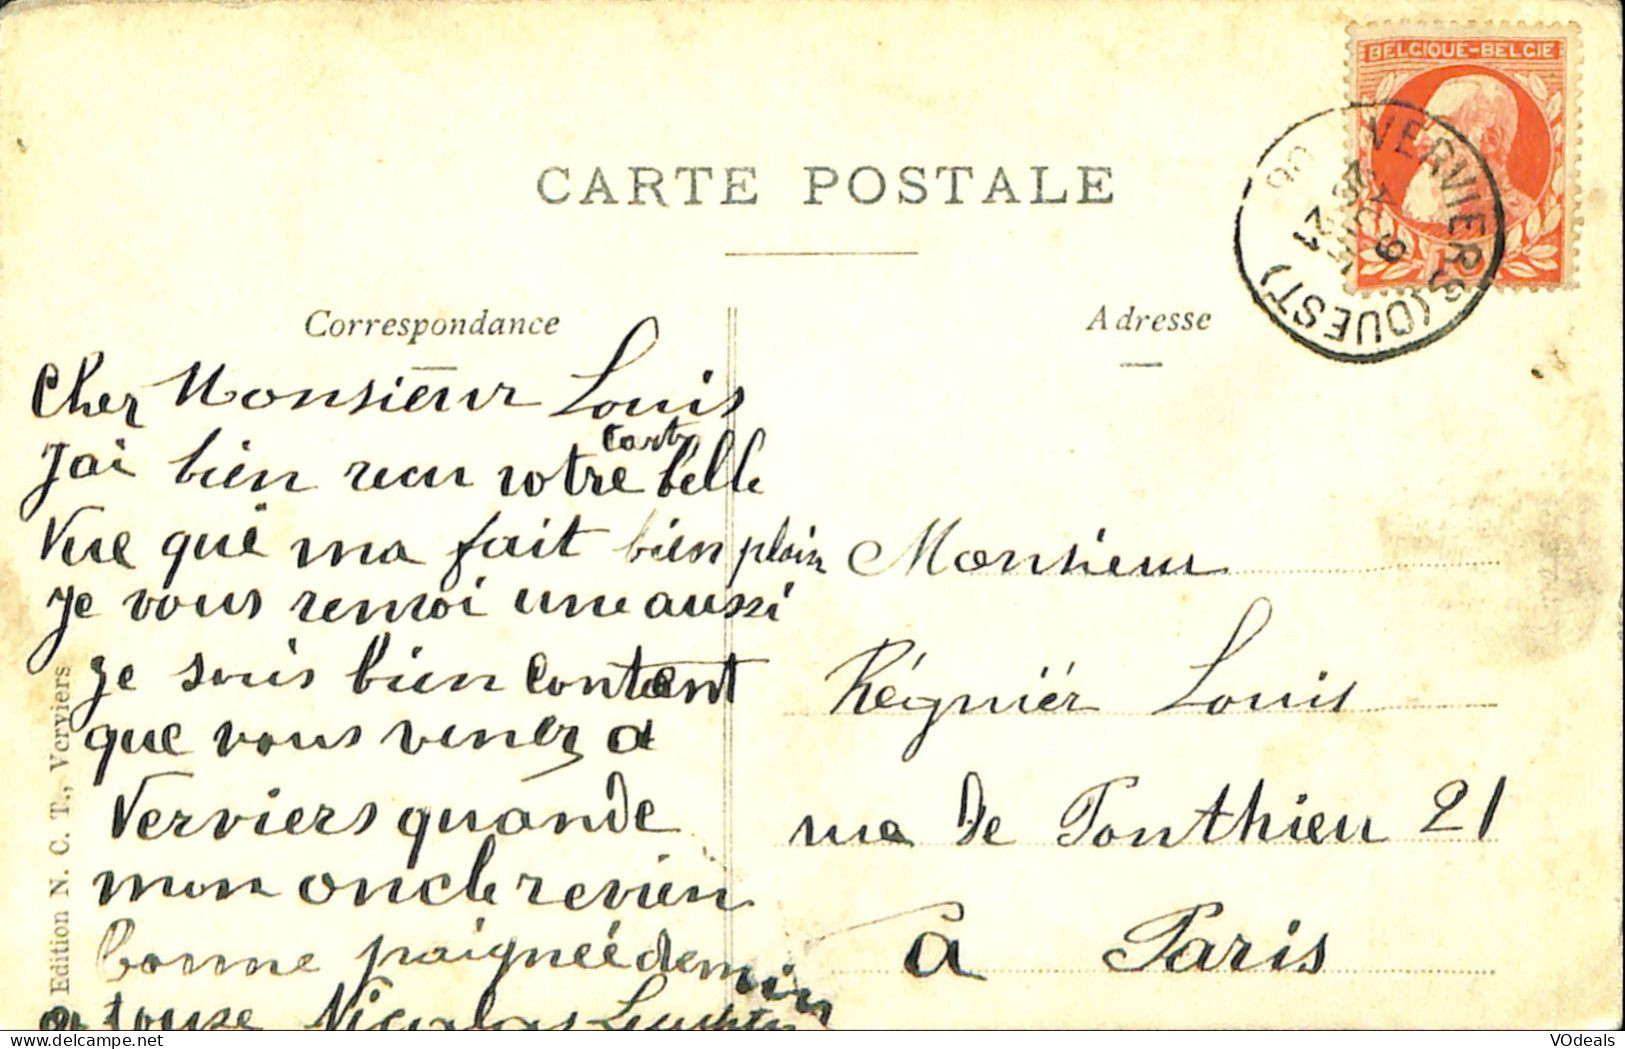 BELGIQUE-BELGIE
VERVIERS (OUEST)
CARTE POSTALE
Correspondance
Adresse
Cher Monsieur Louis
J'ai bien recu votre belle
carte
Vue que ma fait bien plaisir
Je vous renvoi une aussi
Je suis bien contant
que vous venez a
Verviers quande
mon oncle revien
bonne paignée de min
Nicolas
Monsieur
Régniér Louis
rue de Ponthieu 21
a Paris
Edition N. C. T., Verviers
VOdeals